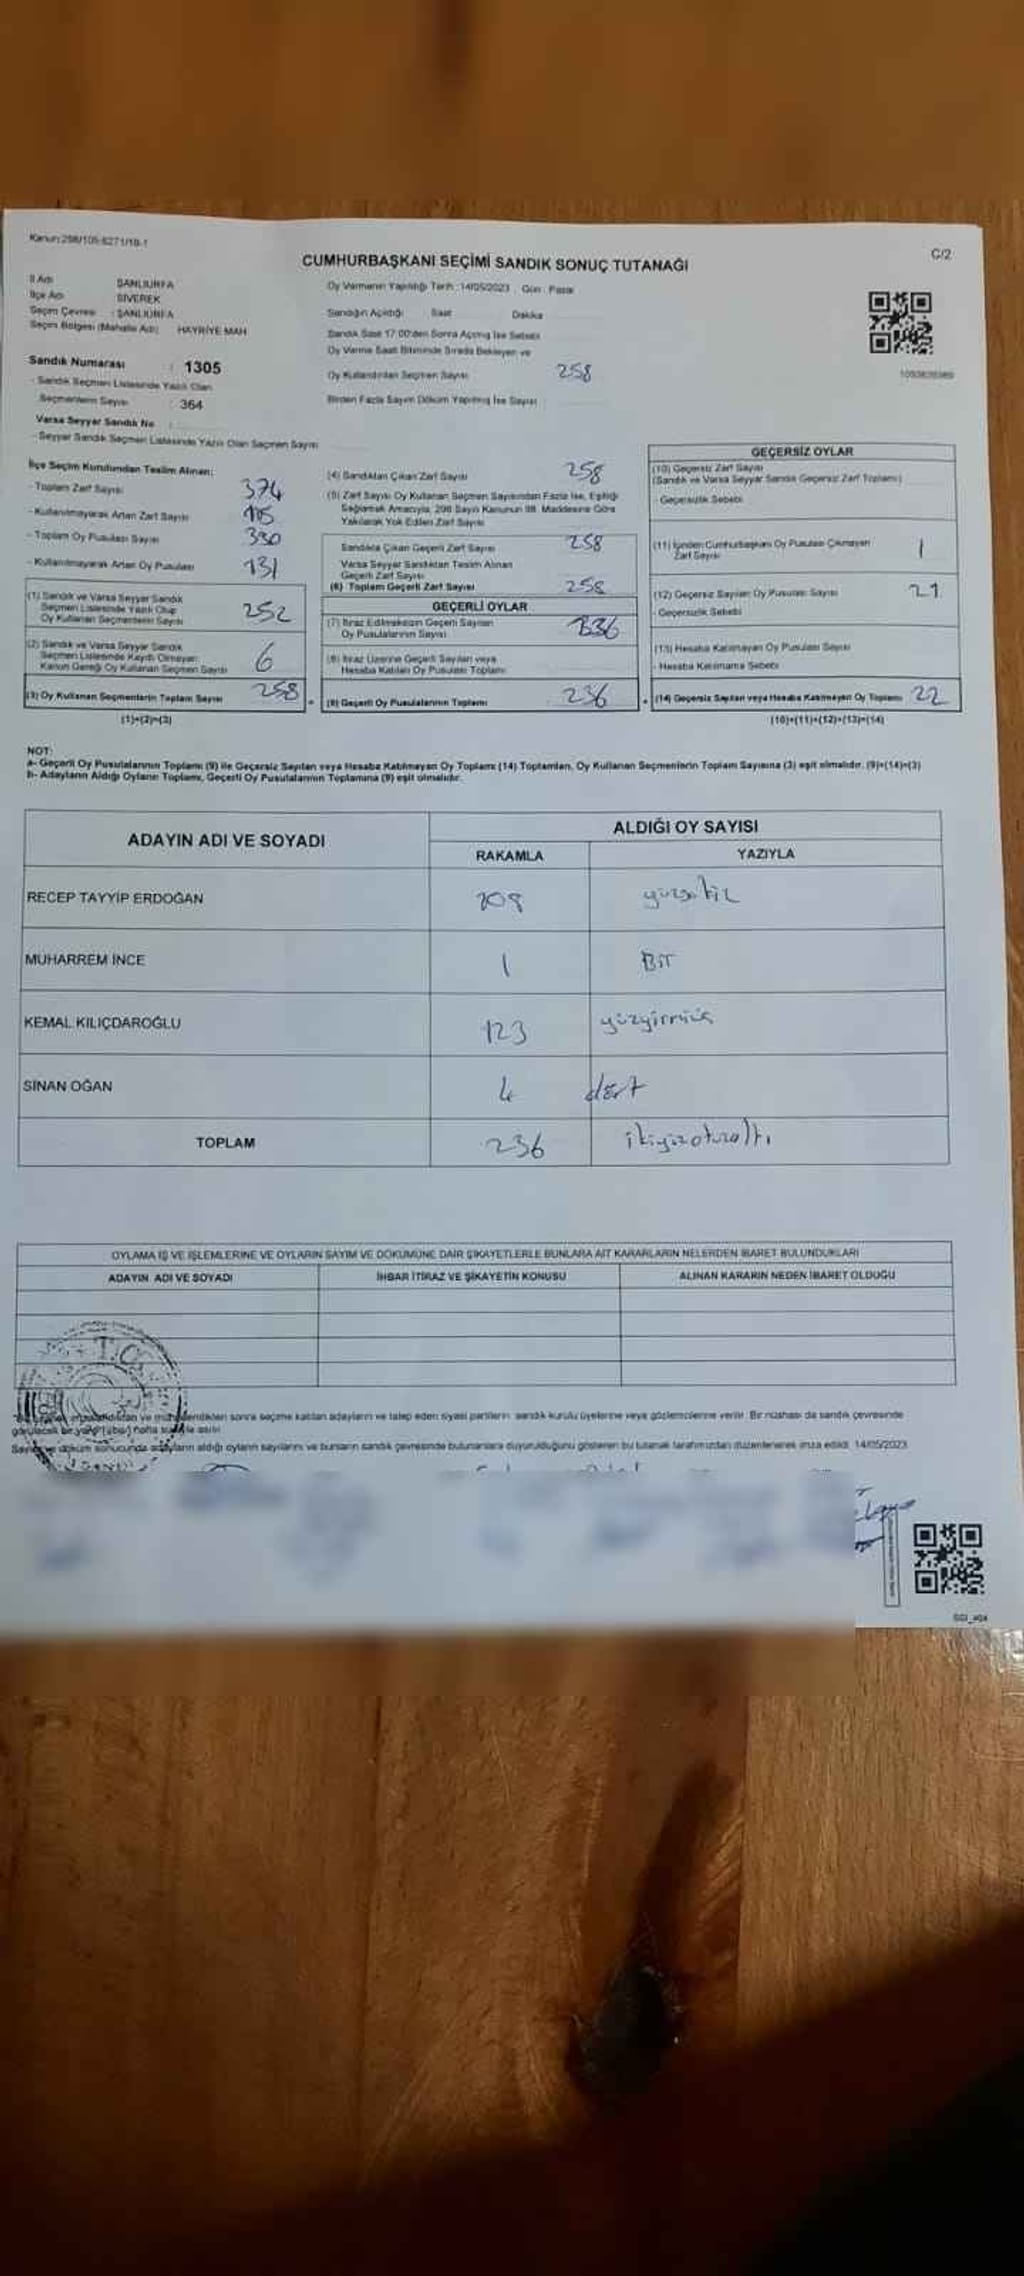 Kanun:298/105-6271/18-1
C/2
CUMHURBAŞKANI SEÇİMİ SANDIK SONUÇ TUTANAĞI
İl Adı : ŞANLIURFA
İlçe Adı : SİVEREK
Seçim Çevresi : ŞANLIURFA
Seçim Bölgesi (Mahalle Adı) : HAYRİYE MAH
Sandık Numarası : 1305
- Sandık Seçmen Listesinde Yazılı Olan
Seçmenlerin Sayısı : 364
Varsa Seyyar Sandık No :
- Seyyar Sandık Seçmen Listesinde Yazılı Olan Seçmen Sayısı
Oy Vermenin Yapıldığı Tarih :14/05/2023 Gün : Pazar
Sandığın Açıldığı Saat Dakika
Sandık Saat 17:00'den Sonra Açılmış İse Sebebi
Oy Verme Saati Bitiminde Sırada Bekleyen ve
Oy Kullandırılan Seçmen Sayısı 258
Birden Fazla Sayım Döküm Yapılmış İse Sayısı :
İlçe Seçim Kurulundan Teslim Alınan:
- Toplam Zarf Sayısı 374
- Kullanılmayarak Artan Zarf Sayısı
- Toplam Oy Pusulası Sayısı
- Kullanılmayarak Artan Oy Pusulası 131
(1) Sandık ve Varsa Seyyar Sandık
Seçmen Listesinde Yazılı Olup
Oy Kullanan Seçmenlerin Sayısı 252
(2) Sandık ve Varsa Seyyar Sandık
Seçmen Listesinde Kaydı Olmayan
Kanun Gereği Oy Kullanan Seçmen Sayısı 6
(3) Oy Kullanan Seçmenlerin Toplam Sayısı 258
(1)+(2)=(3)
(4) Sandıktan Çıkan Zarf Sayısı 258
(5) Zarf Sayısı Oy Kullanan Seçmen Sayısından Fazla İse, Eşitliği
Sağlamak Amacıyla, 298 Sayılı Kanunun 98. Maddesine Göre
Yakılarak Yok Edilen Zarf Sayısı
Sandıkta Çıkan Geçerli Zarf Sayısı 258
Varsa Seyyar Sandıktan Teslim Alınan
Geçerli Zarf Sayısı
(6) Toplam Geçerli Zarf Sayısı 258
GEÇERLİ OYLAR
(7) İtiraz Edilmeksizin Geçerli Sayılan
Oy Pusulalarının Sayısı 236
(8) İtiraz Üzerine Geçerli Sayılan veya
Hesaba Katılan Oy Pusulası Toplamı
(9) Geçerli Oy Pusulalarının Toplamı 236
GEÇERSİZ OYLAR
(10) Geçersiz Zarf Sayısı
(Sandık ve Varsa Seyyar Sandık Geçersiz Zarf Toplamı)
- Geçersizlik Sebebi
(11) İçinden Cumhurbaşkanı Oy Pusulası Çıkmayan
Zarf Sayısı 1
(12) Geçersiz Sayılan Oy Pusulası Sayısı 21
- Geçersizlik Sebebi
(13) Hesaba Katılmayan Oy Pusulası Sayısı
- Hesaba Katılmama Sebebi
(14) Geçersiz Sayılan veya Hesaba Katılmayan Oy Toplamı 22
(10)+(11)+(12)+(13)=(14)
NOT:
a- Geçerli Oy Pusulalarının Toplamı (9) ile Geçersiz Sayılan veya Hesaba Katılmayan Oy Toplamı (14) Toplamları, Oy Kullanan Seçmenlerin Toplam Sayısına (3) eşit olmalıdır. (9)+(14)=(3)
b- Adayların Aldığı Oyların Toplamı, Geçerli Oy Pusulalarının Toplamına (9) eşit olmalıdır.
ADAYIN ADI VE SOYADI
ALDIĞI OY SAYISI
RAKAMLA YAZIYLA
RECEP TAYYİP ERDOĞAN 108 yüzsekiz
MUHARREM İNCE 1 Bir
KEMAL KILIÇDAROĞLU 123 yüzyirmiüç
SİNAN OĞAN 4 dört
TOPLAM 236 ikiyüzotuzaltı
OYLAMA İŞ VE İŞLEMLERİNE VE OYLARIN SAYIM VE DÖKÜMÜNE DAİR ŞİKAYETLERLE BUNLARA AİT KARARLARIN NELERDEN İBARET BULUNDUKLARI
ADAYIN ADI VE SOYADI İHBAR İTİRAZ VE ŞİKAYETİN KONUSU ALINAN KARARIN NEDEN İBARET OLDUĞU
T.C.
sonra seçime katılan adayların ve talep eden siyasi partilerin sandık kurulu üyelerine veya gözlemcilerine verilir. Bir nüshası da sandık çevresinde
görülecek bir yere
sonucunda adayların aldığı oyların sayılarını ve bunların sandık çevresinde bulunanlara duyurulduğunu gösteren bu tutanak tarafımızdan düzenlenerek imza edildi. 14/05/2023